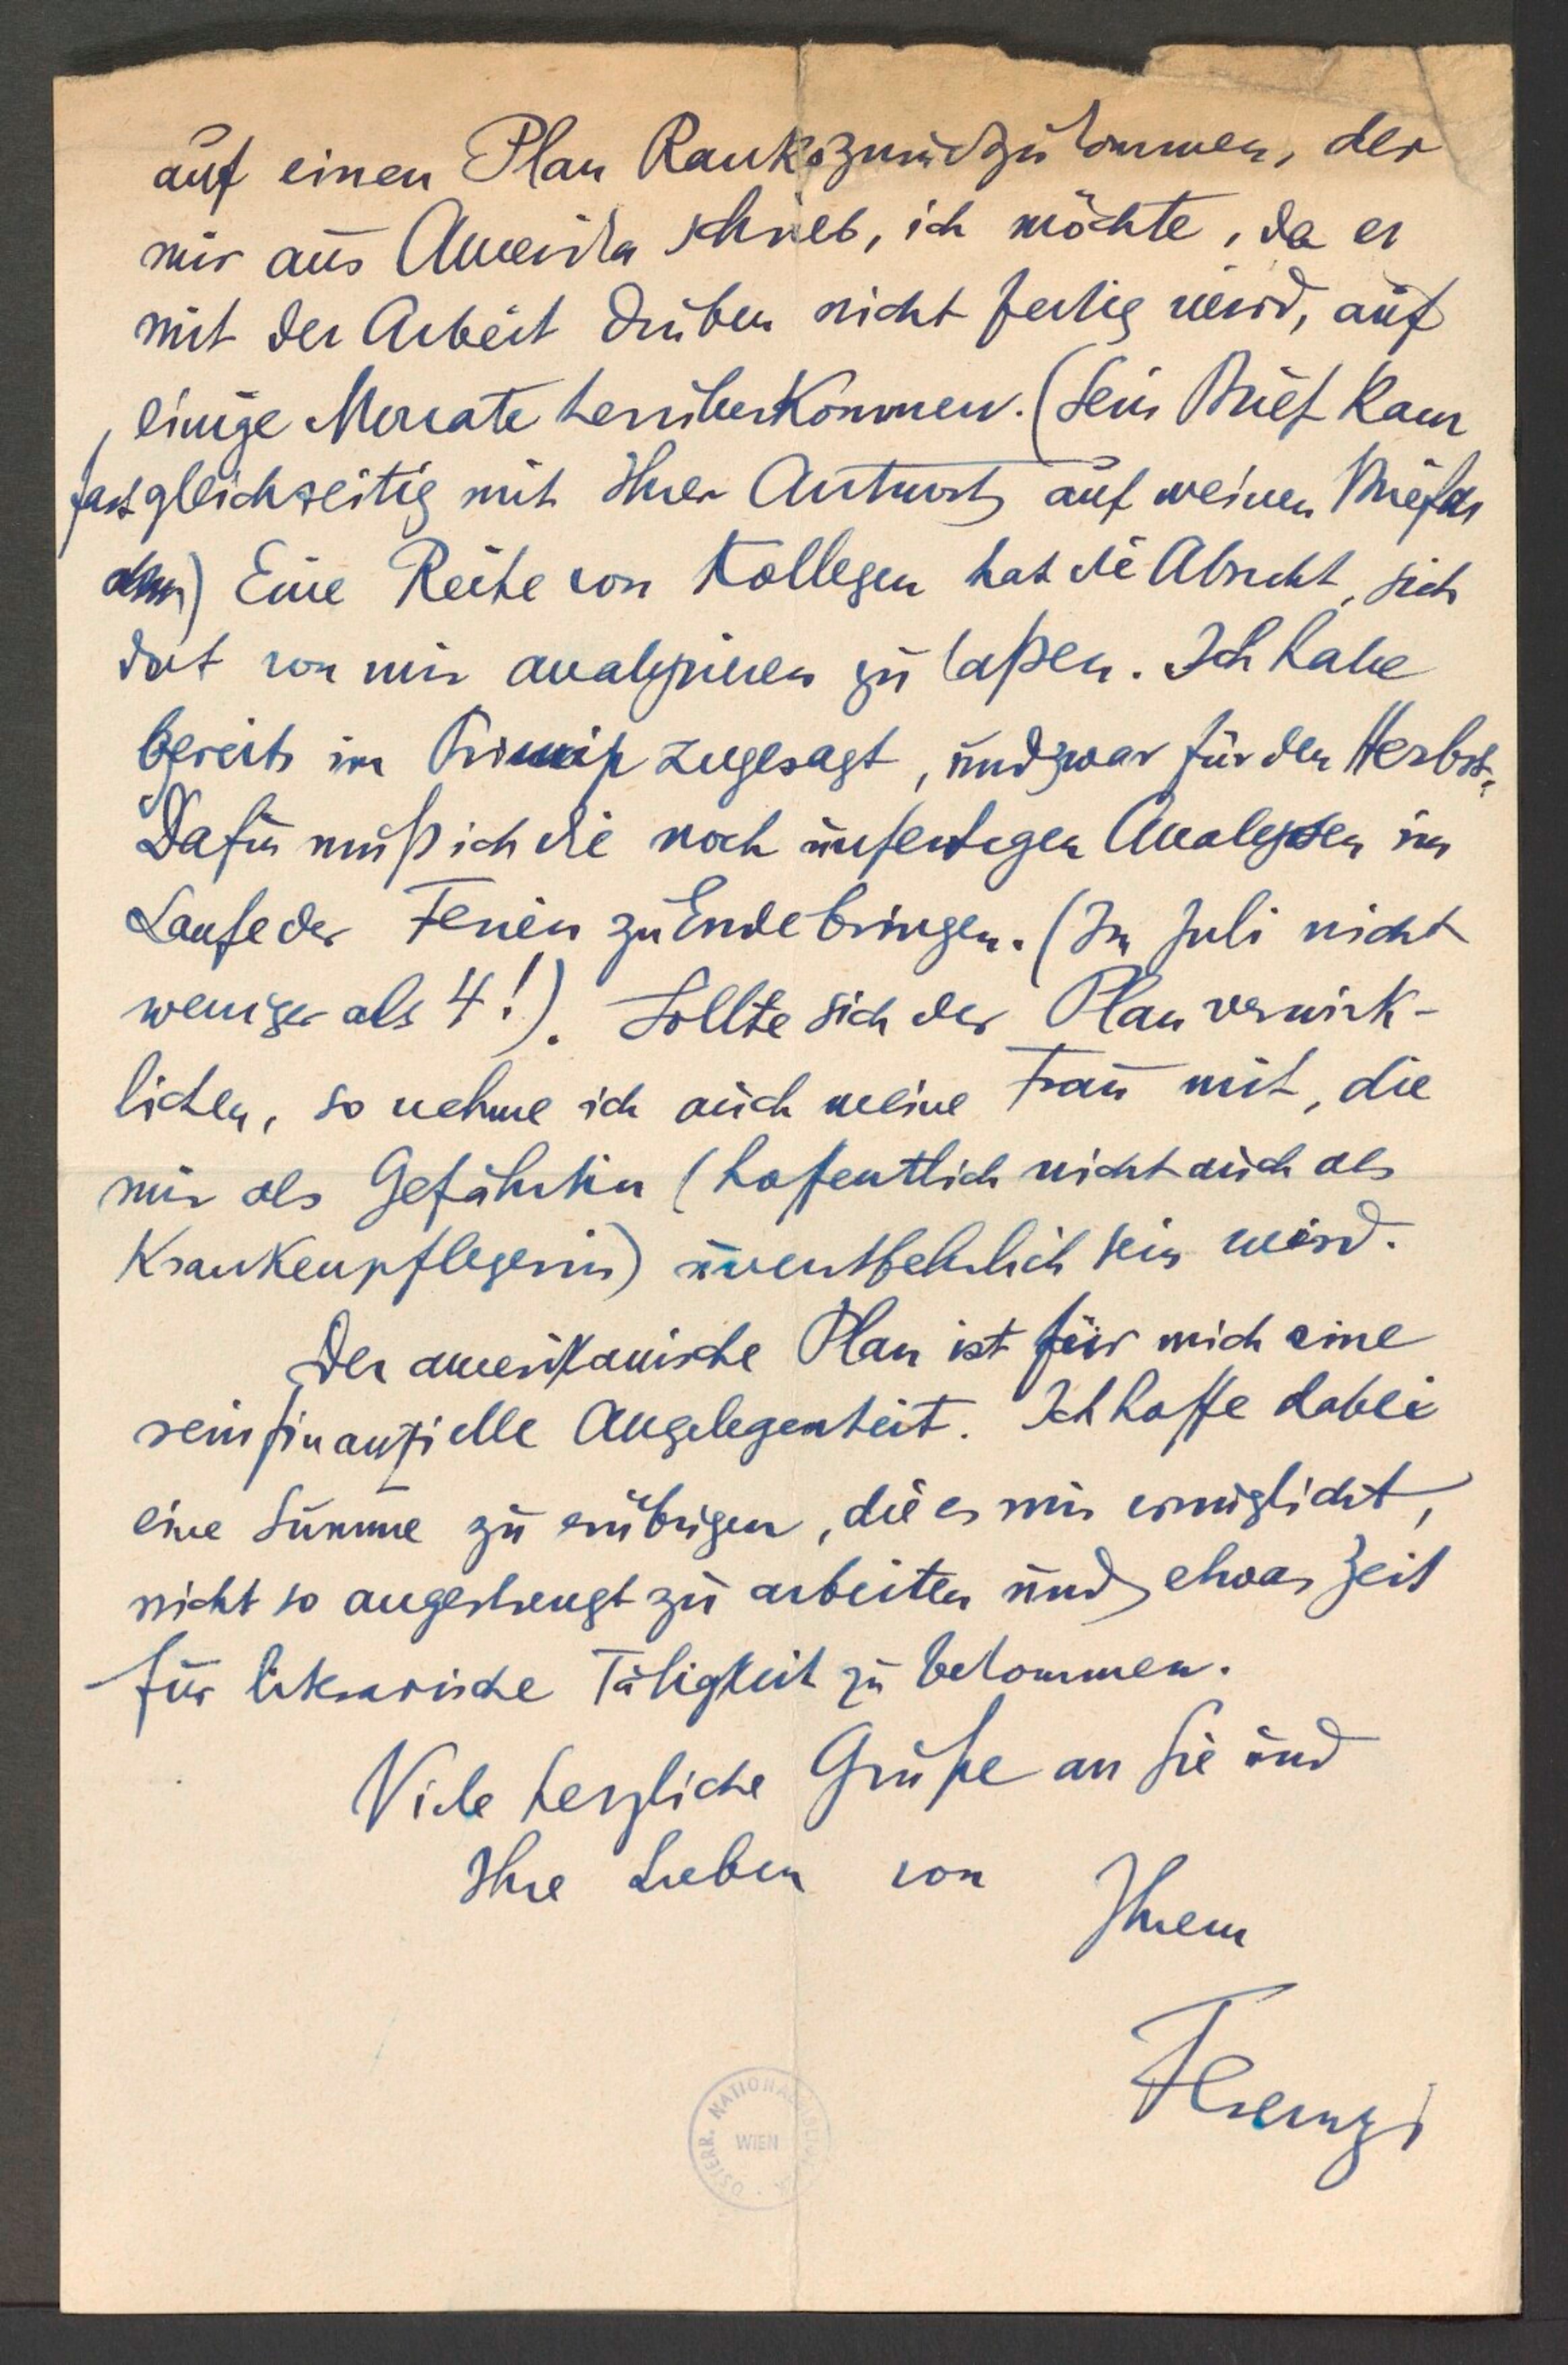 auf einen Plan Ranks zurückzukommen, der
mir aus Amerika schrieb, ich möchte, da er
mit der Arbeit drüben nicht fertig wird, auf
einige Monate herüberkommen. (Sein Brief kam
fast gleichzeitig mit Ihrer Antwort auf meinen Brief an
) Eine Reihe von Kollegen hat die Absicht, sich
dort von mir analysieren zu laßen. Ich habe
bereits im Prinzip zugesagt, und zwar für den Herbst.
Dafür muß ich die noch unfertigen Analysen im
Laufe der Ferien zu Ende bringen. (Im Juli nicht
weniger als 4!). Sollte sich der Plan verwirk-
lichen, so nehme ich auch meine Frau mit, die
mir als Gefährtin (hofentlich nicht auch als
Krankenpflegerin) unentbehrlich sein wird.
Der amerikanische Plan ist für mich eine
rein finanzielle Angelegenheit. Ich hoffe dabei
eine Summe zu erübrigen, die es mir ermöglicht,
nicht so angestrengt zu arbeiten und etwas Zeit
für literarische Tätigkeit zu bekommen.
Viele herzliche Grüße an Sie und
Ihre Lieben von
Ihrem
Ferenczi
ÖSTERR. NATIONALBIBLIOTHEK
WIEN